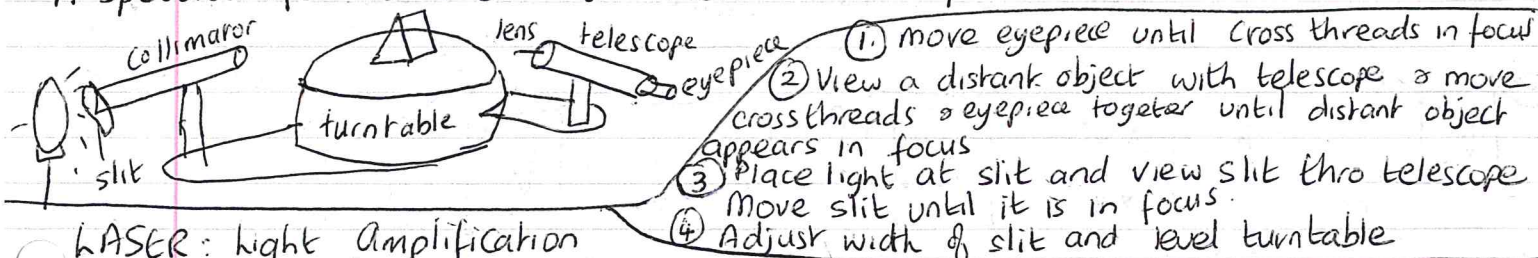 collimator
lens
telescope
eyepiece
turntable
slit
① move eyepiece until cross threads in focus
② View a distant object with telescope & move
crossthreads & eyepiece togeter until distant object
appears in focus
③ Place light at slit and view slit thro telescope
Move slit until it is in focus.
④ Adjust width of slit and level turntable
LASER: Light Amplification